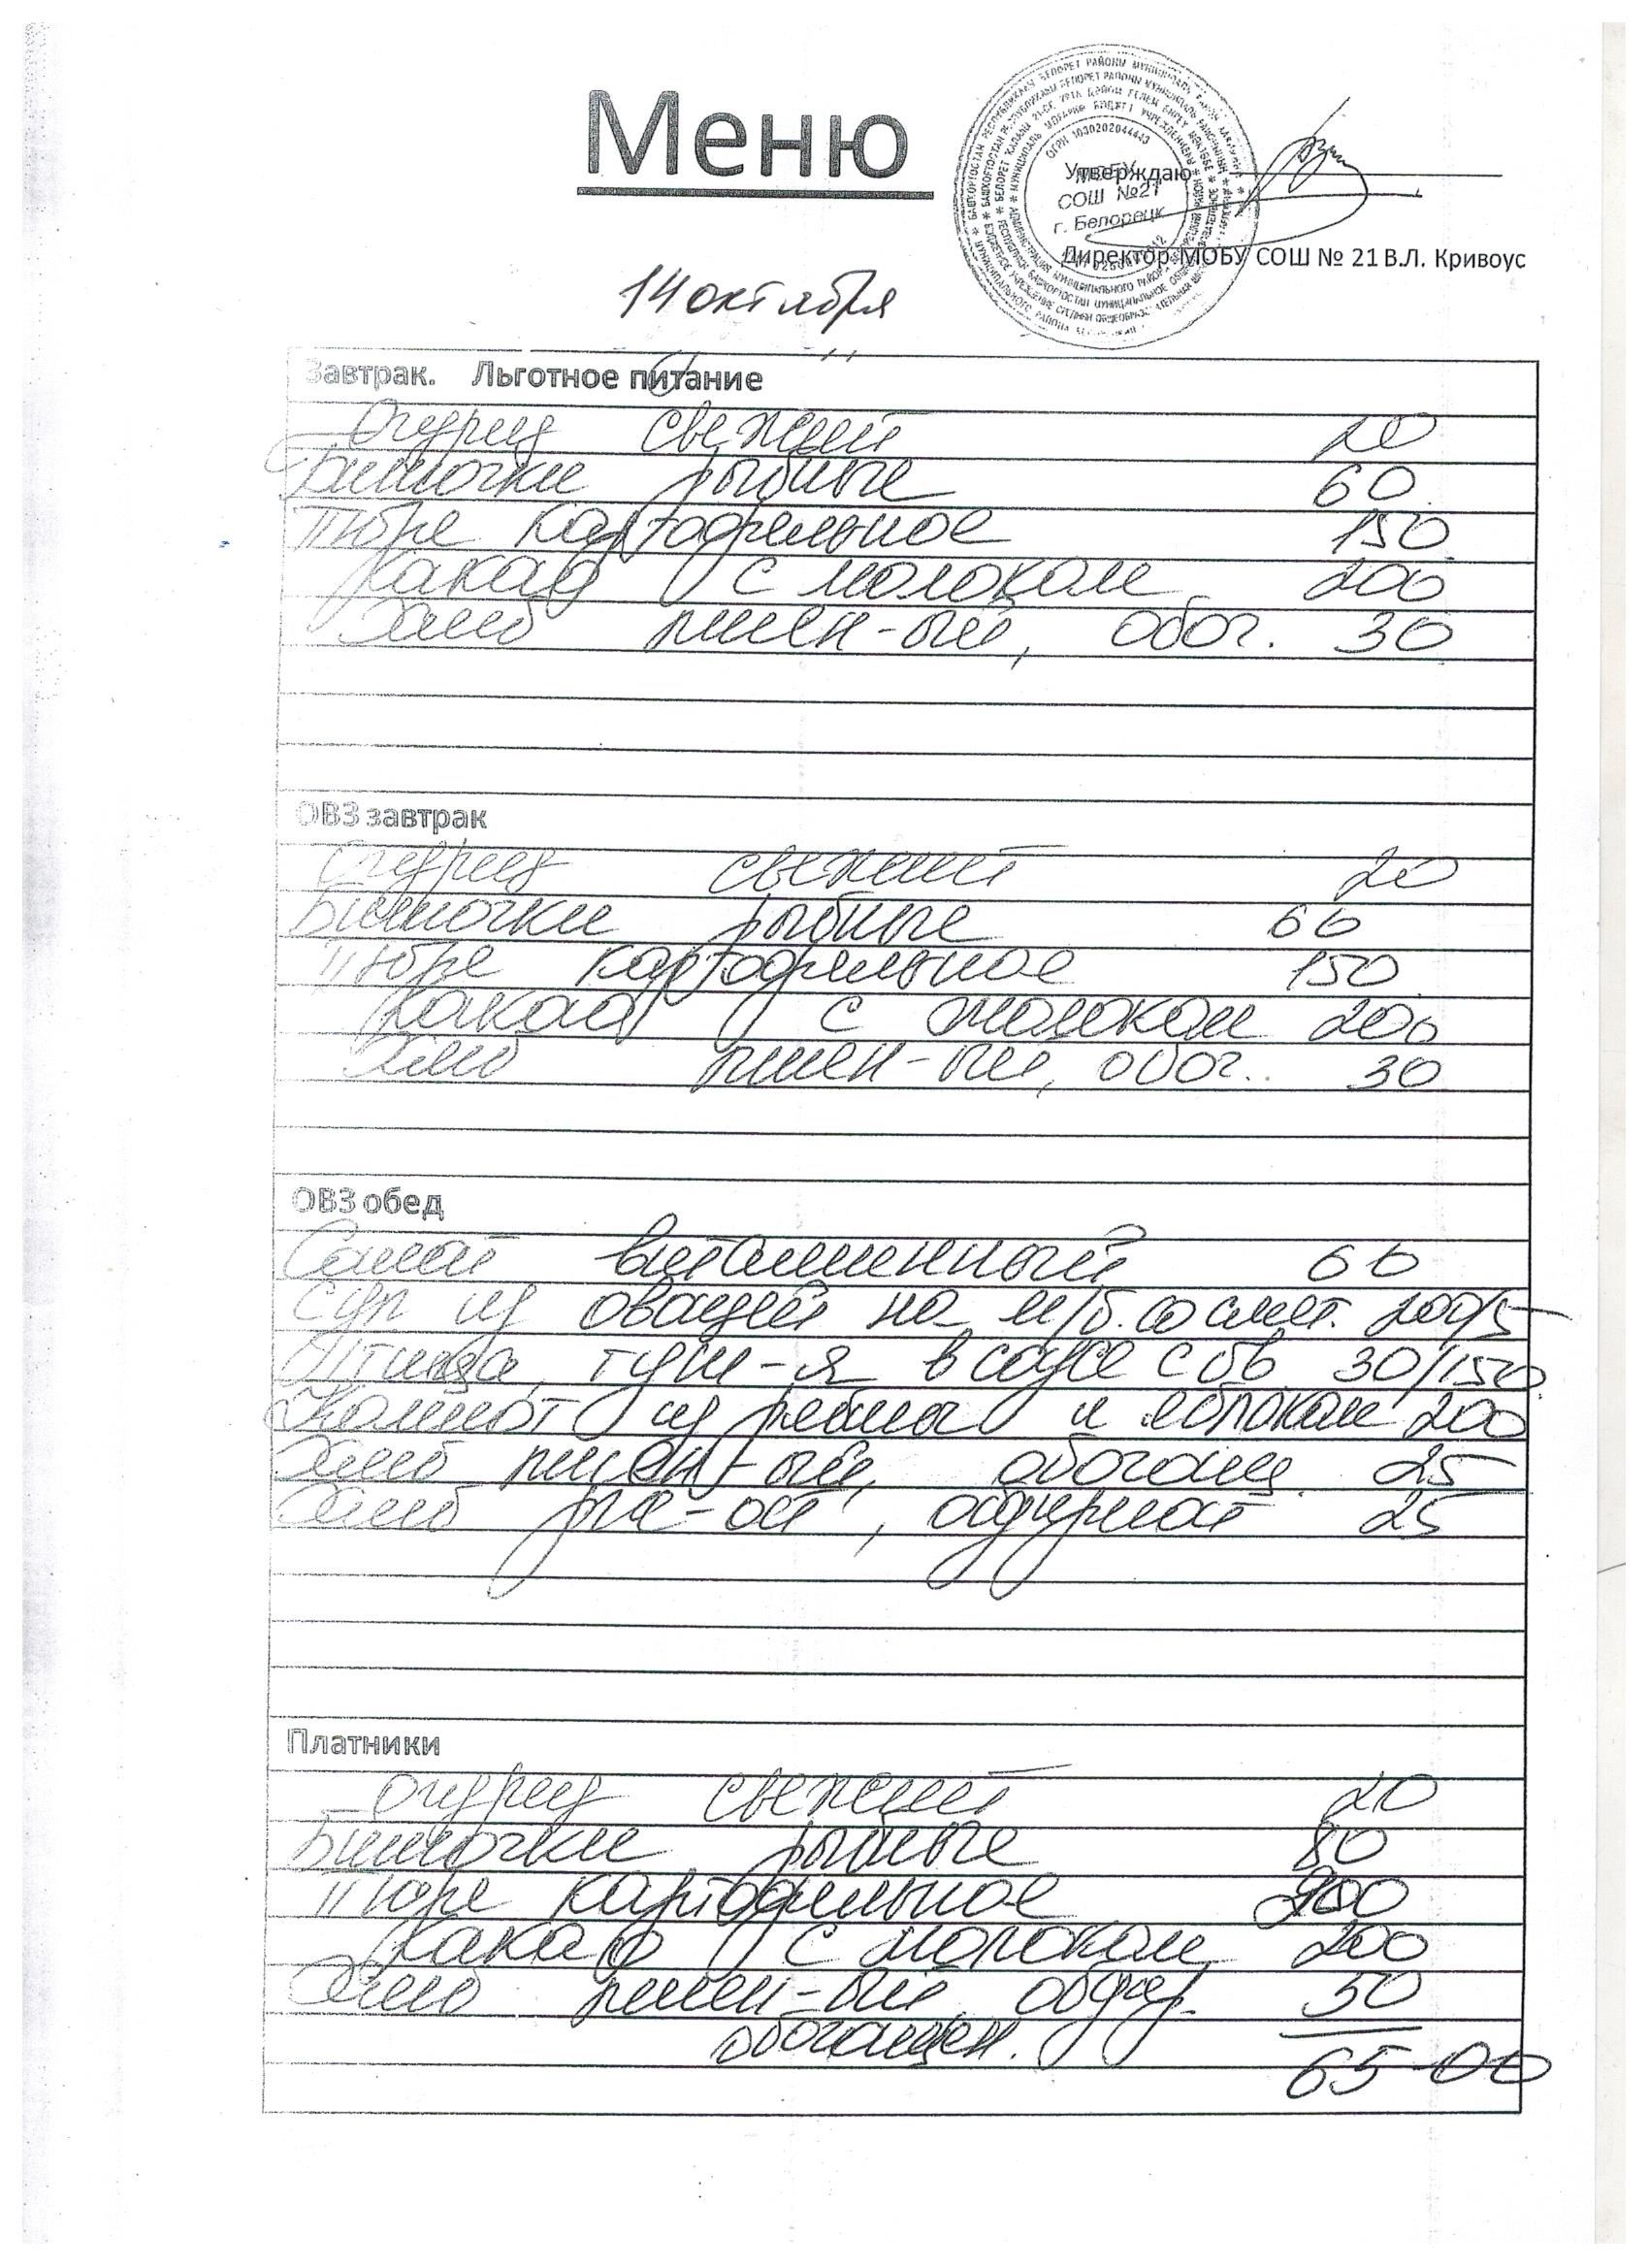 Меню
Утверждаю
МОБУ
СОШ №21
г. Белорецк
ОГРН 1030202044443
Директор МОБУ СОШ № 21 В.Л. Кривоус
14 октября
Завтрак. Льготное питание
Огурец свежий 20
Биточки рыбные 60
Пюре картофельное 150
Какао с молоком 200
Хлеб пшен-ый, обог. 30
ОВЗ завтрак
Огурец свежий 20
Биточки рыбные 60
Пюре картофельное 150
Какао с молоком 200
Хлеб пшен-ый, обог. 30
ОВЗ обед
Салат витаминный 60
Суп из овощей на м/б. со смет. 200/5
Птица, туш-я в соусе с ов. 30/150
Компот из рябины и яблоками 200
Хлеб пшен-ый, обогащ. 25
Хлеб рж-ой, подовый 25
Платники
Огурец свежий 20
Биточки рыбные 80
Пюре картофельное 200
Какао с молоком 200
Хлеб пшен-ый обжар. 50
обогащен.
65-00